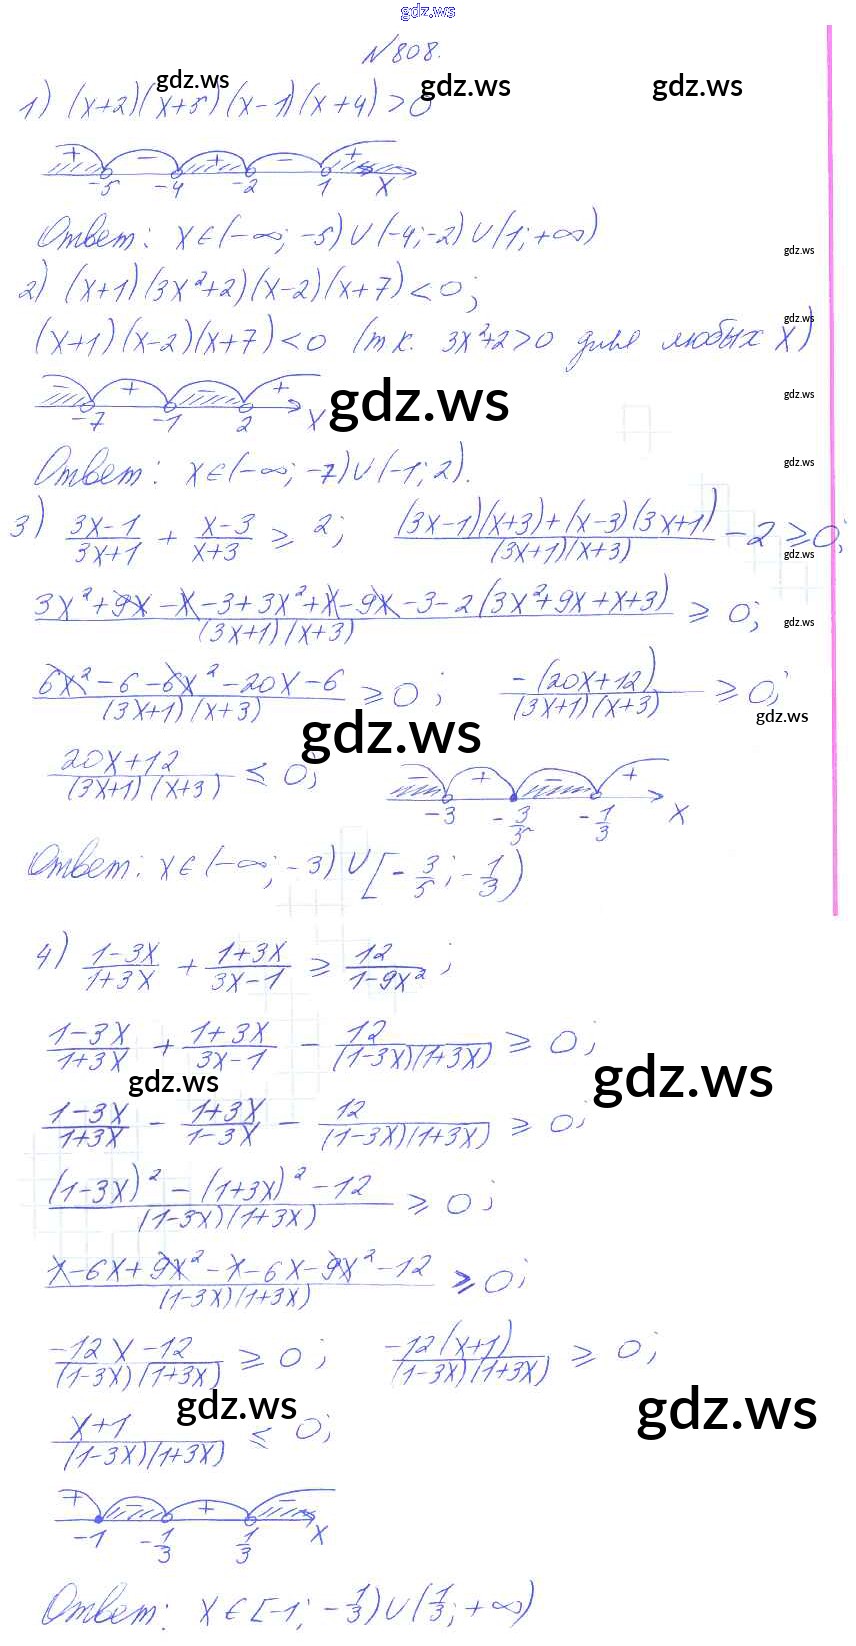 gdz.ws
N 808.
gdz.ws gdz.ws gdz.ws
1) (x+2)(x+5)(x-1)(x+4)>0
+ - + - +
-5 -4 -2 1 x
Ответ: x∈(-∞; -5)∪(-4;-2)∪(1;+∞)
gdz.ws
2) (x+1)(3x²+2)(x-2)(x+7)<0;
gdz.ws
(x+1)(x-2)(x+7)<0 (т.к. 3x²+2>0 для любых x)
- + - +
gdz.ws gdz.ws
-7 -1 2 x
gdz.ws
Ответ: x∈(-∞; -7)∪(-1; 2).
3) (3x-1)/(3x+1) + (x-3)/(x+3) ≥ 2; ((3x-1)(x+3)+(x-3)(3x+1))/((3x+1)(x+3)) - 2 ≥ 0;
gdz.ws
(3x²+9x-x-3+3x²+x-9x-3-2(3x²+9x+x+3))/((3x+1)(x+3)) ≥ 0;
gdz.ws
(6x²-6-6x²-20x-6)/((3x+1)(x+3)) ≥ 0; (-(20x+12))/((3x+1)(x+3)) ≥ 0;
gdz.ws gdz.ws
(20x+12)/((3x+1)(x+3)) ≤ 0;
- + - +
-3 -3/5 -1/3 x
Ответ: x∈(-∞; -3)∪[-3/5; -1/3)
4) (1-3x)/(1+3x) + (1+3x)/(3x-1) ≥ 12/(1-9x²);
(1-3x)/(1+3x) + (1+3x)/(3x-1) - 12/((1-3x)(1+3x)) ≥ 0;
gdz.ws gdz.ws
(1-3x)/(1+3x) - (1+3x)/(1-3x) - 12/((1-3x)(1+3x)) ≥ 0;
((1-3x)²-(1+3x)²-12)/((1-3x)(1+3x)) ≥ 0;
(1-6x+9x²-1-6x-9x²-12)/((1-3x)(1+3x)) ≥ 0;
(-12x-12)/((1-3x)(1+3x)) ≥ 0; (-12(x+1))/((1-3x)(1+3x)) ≥ 0;
gdz.ws gdz.ws
(x+1)/((1-3x)(1+3x)) ≤ 0;
+ - + -
-1 -1/3 1/3 x
Ответ: x∈[-1; -1/3)∪(1/3; +∞)